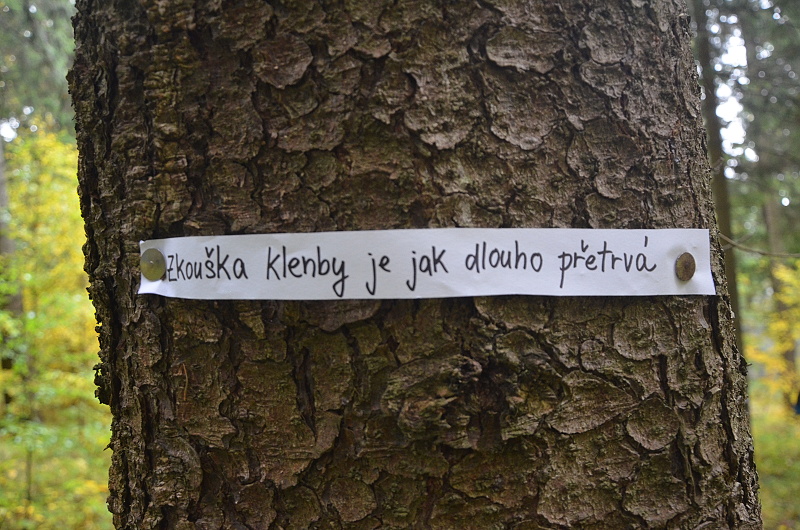 Zkouška klenby je jak dlouho přetrvá